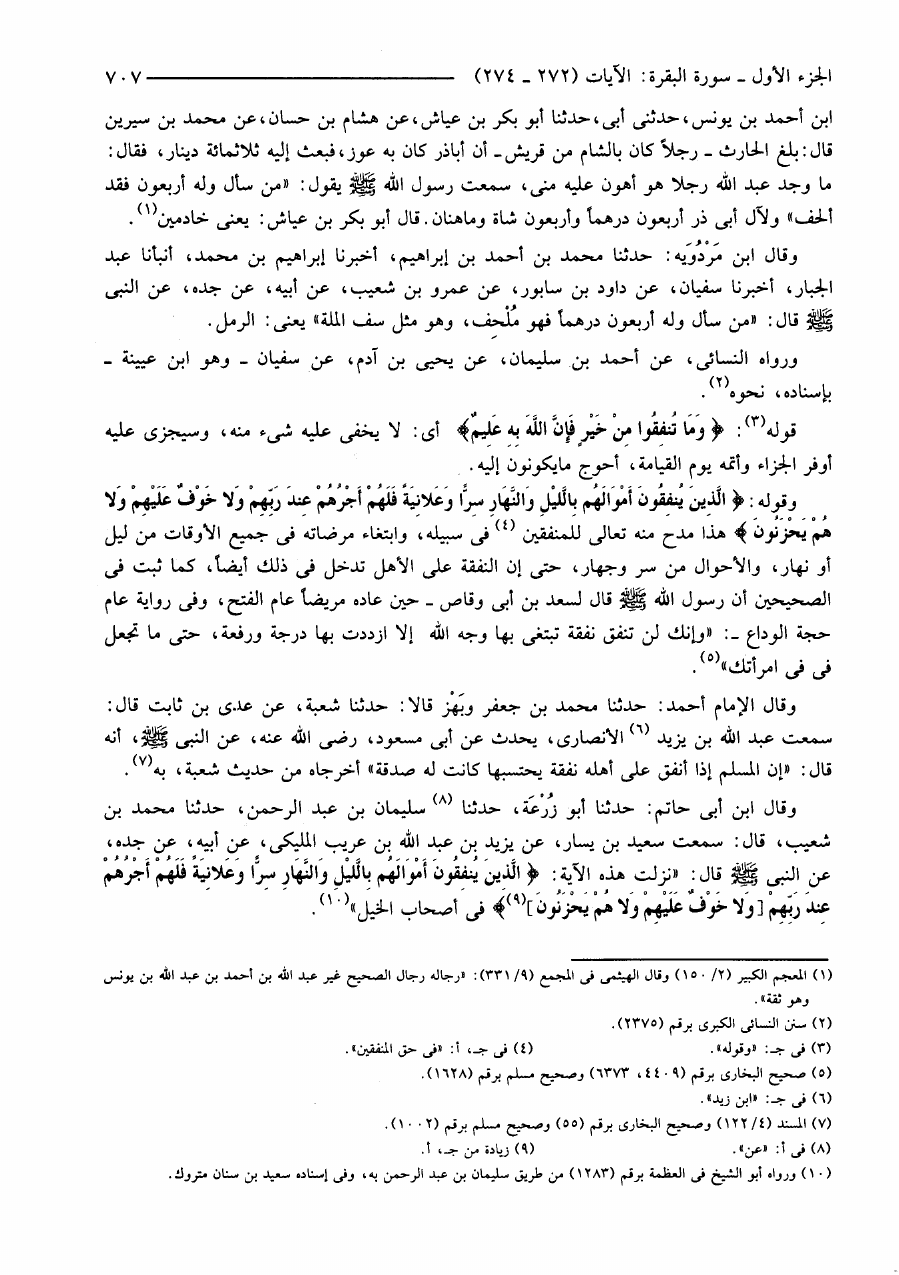 الجزء الأول ـ سورة البقرة: الآيات (٢٧٢ ـ ٢٧٤) ٧٠٧
ابن أحمد بن يونس، حدثنى أبى، حدثنا أبو بكر بن عياش، عن هشام بن حسان، عن محمد بن سيرين
قال: بلغ الحارث ـ رجلاً كان بالشام من قريش ـ أن أباذر كان به عوز، فبعث إليه ثلاثمائة دينار، فقال:
ما وجد عبد الله رجلا هو أهون عليه منى، سمعت رسول الله ﷺ يقول: «من سأل وله أربعون فقد
ألحف» ولآل أبى ذر أربعون درهماً وأربعون شاة وماهنان. قال أبو بكر بن عياش: يعنى خادمين(١).
وقال ابن مَرْدُوَيه: حدثنا محمد بن أحمد بن إبراهيم، أخبرنا إبراهيم بن محمد، أنبأنا عبد
الجبار، أخبرنا سفيان، عن داود بن سابور، عن عمرو بن شعيب، عن أبيه، عن جده، عن النبى
ﷺ قال: «من سأل وله أربعون درهماً فهو مُلْحِف، وهو مثل سف الملة» يعنى: الرمل.
ورواه النسائى، عن أحمد بن سليمان، عن يحيى بن آدم، عن سفيان ـ وهو ابن عيينة ـ
بإسناده، نحوه(٢).
قوله(٣): ﴿ وَمَا تُنفِقُوا مِنْ خَيْرٍ فَإِنَّ اللَّهَ بِهِ عَلِيمٌ﴾ أى: لا يخفى عليه شىء منه، وسيجزى عليه
أوفر الجزاء وأتمه يوم القيامة، أحوج مايكونون إليه.
وقوله: ﴿ الَّذِينَ يُنفِقُونَ أَمْوَالَهُم بِاللَّيْلِ وَالنَّهَارِ سِرًّا وَعَلانِيَةً فَلَهُمْ أَجْرُهُمْ عِندَ رَبِّهِمْ وَلا خَوْفٌ عَلَيْهِمْ وَلا
هُمْ يَحْزَنُونَ ﴾ هذا مدح منه تعالى للمنفقين (٤) فى سبيله، وابتغاء مرضاته فى جميع الأوقات من ليل
أو نهار، والأحوال من سر وجهار، حتى إن النفقة على الأهل تدخل فى ذلك أيضاً، كما ثبت فى
الصحيحين أن رسول الله ﷺ قال لسعد بن أبى وقاص ـ حين عاده مريضاً عام الفتح، وفى رواية عام
حجة الوداع ـ: «وإنك لن تنفق نفقة تبتغى بها وجه الله إلا ازددت بها درجة ورفعة، حتى ما تجعل
فى فى امرأتك»(٥).
وقال الإمام أحمد: حدثنا محمد بن جعفر وبَهْز قالا: حدثنا شعبة، عن عدى بن ثابت قال:
سمعت عبد الله بن يزيد (٦) الأنصارى، يحدث عن أبى مسعود، رضى الله عنه، عن النبى ﷺ، أنه
قال: «إن المسلم إذا أنفق على أهله نفقة يحتسبها كانت له صدقة» أخرجاه من حديث شعبة، به(٧).
وقال ابن أبى حاتم: حدثنا أبو زُرْعَة، حدثنا (٨) سليمان بن عبد الرحمن، حدثنا محمد بن
شعيب، قال: سمعت سعيد بن يسار، عن يزيد بن عبد الله بن عريب المليكى، عن أبيه، عن جده،
عن النبى ﷺ قال: «نزلت هذه الآية: ﴿ الَّذِينَ يُنفِقُونَ أَمْوَالَهُم بِاللَّيْلِ وَالنَّهَارِ سِرًّا وَعَلانِيَةً فَلَهُمْ أَجْرُهُمْ
عِندَ رَبِّهِمْ [وَلا خَوْفٌ عَلَيْهِمْ وَلا هُمْ يَحْزَنُونَ](٩)﴾ فى أصحاب الخيل»(١٠).
(١) المعجم الكبير (٢/ ١٥٠) وقال الهيثمى فى المجمع (٩/ ٣٣١): «رجاله رجال الصحيح غير عبد الله بن أحمد بن عبد الله بن يونس
وهو ثقة».
(٢) سنن النسائى الكبرى برقم (٢٣٧٥).
(٣) فى جـ: «وقوله». (٤) فى جـ، أ: «فى حق المنفقين».
(٥) صحيح البخارى برقم (٤٤٠٩، ٦٣٧٣) وصحيح مسلم برقم (١٦٢٨).
(٦) فى جـ: «ابن زيد».
(٧) المسند (٤/ ١٢٢) وصحيح البخارى برقم (٥٥) وصحيح مسلم برقم (١٠٠٢).
(٨) فى أ: «عن». (٩) زيادة من جـ، أ.
(١٠) ورواه أبو الشيخ فى العظمة برقم (١٢٨٣) من طريق سليمان بن عبد الرحمن به، وفى إسناده سعيد بن سنان متروك.